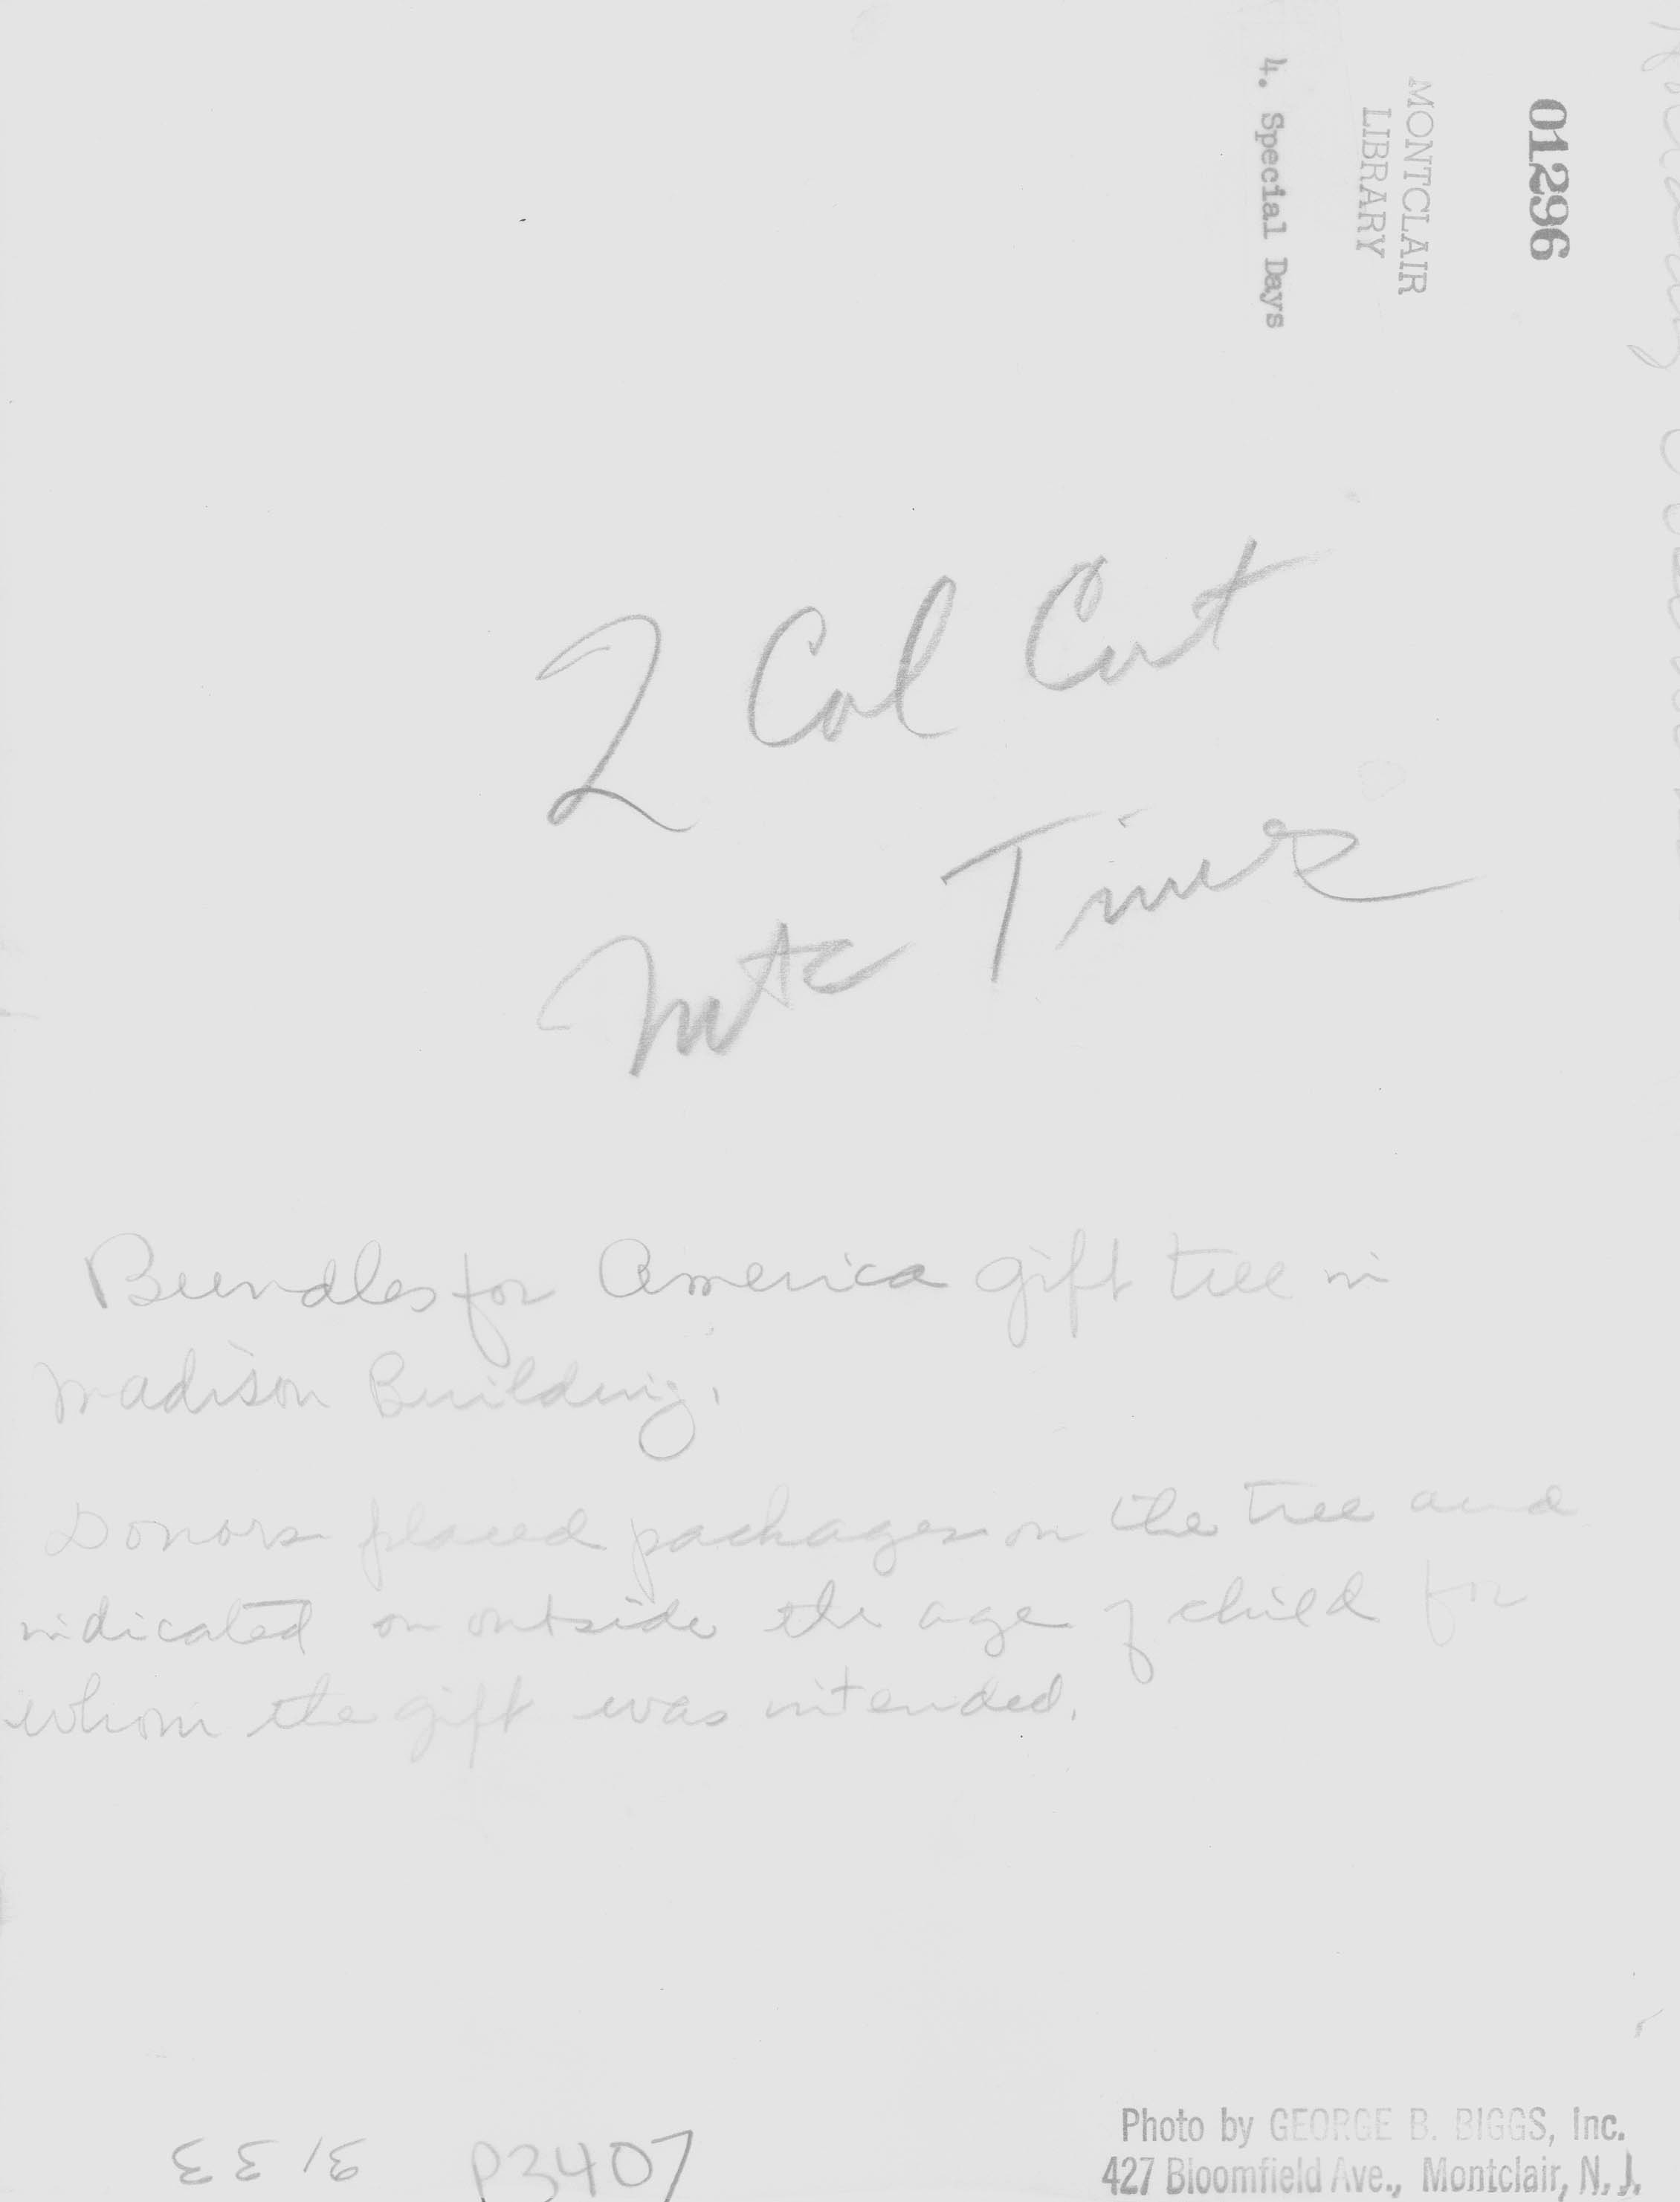 01296
MONTCLAIR
LIBRARY
4. Special Days
2 Col Cut
Mtc Times
Bundles for America gift tree in
Madison Building.
Donors placed packages on the tree and
indicated on outside the age of child for
whom the gift was intended.
P3407
Photo by GEORGE B. BIGGS, Inc.
427 Bloomfield Ave., Montclair, N.J.